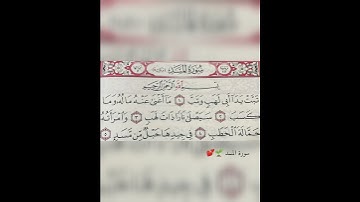 سُورَةُ المَسَدِ
بِسْمِ اللَّهِ الرَّحْمَٰنِ الرَّحِيمِ
تَبَّتْ يَدَا أَبِي لَهَبٍ وَتَبَّ ١ مَا أَغْنَىٰ عَنْهُ مَالُهُ وَمَا
كَسَبَ ٢ سَيَصْلَىٰ نَارًا ذَاتَ لَهَبٍ ٣ وَامْرَأَتُهُ
حَمَّالَةَ الْحَطَبِ ٤ فِي جِيدِهَا حَبْلٌ مِّن مَّسَدٍ ٥
سورة المسد 🌱💕